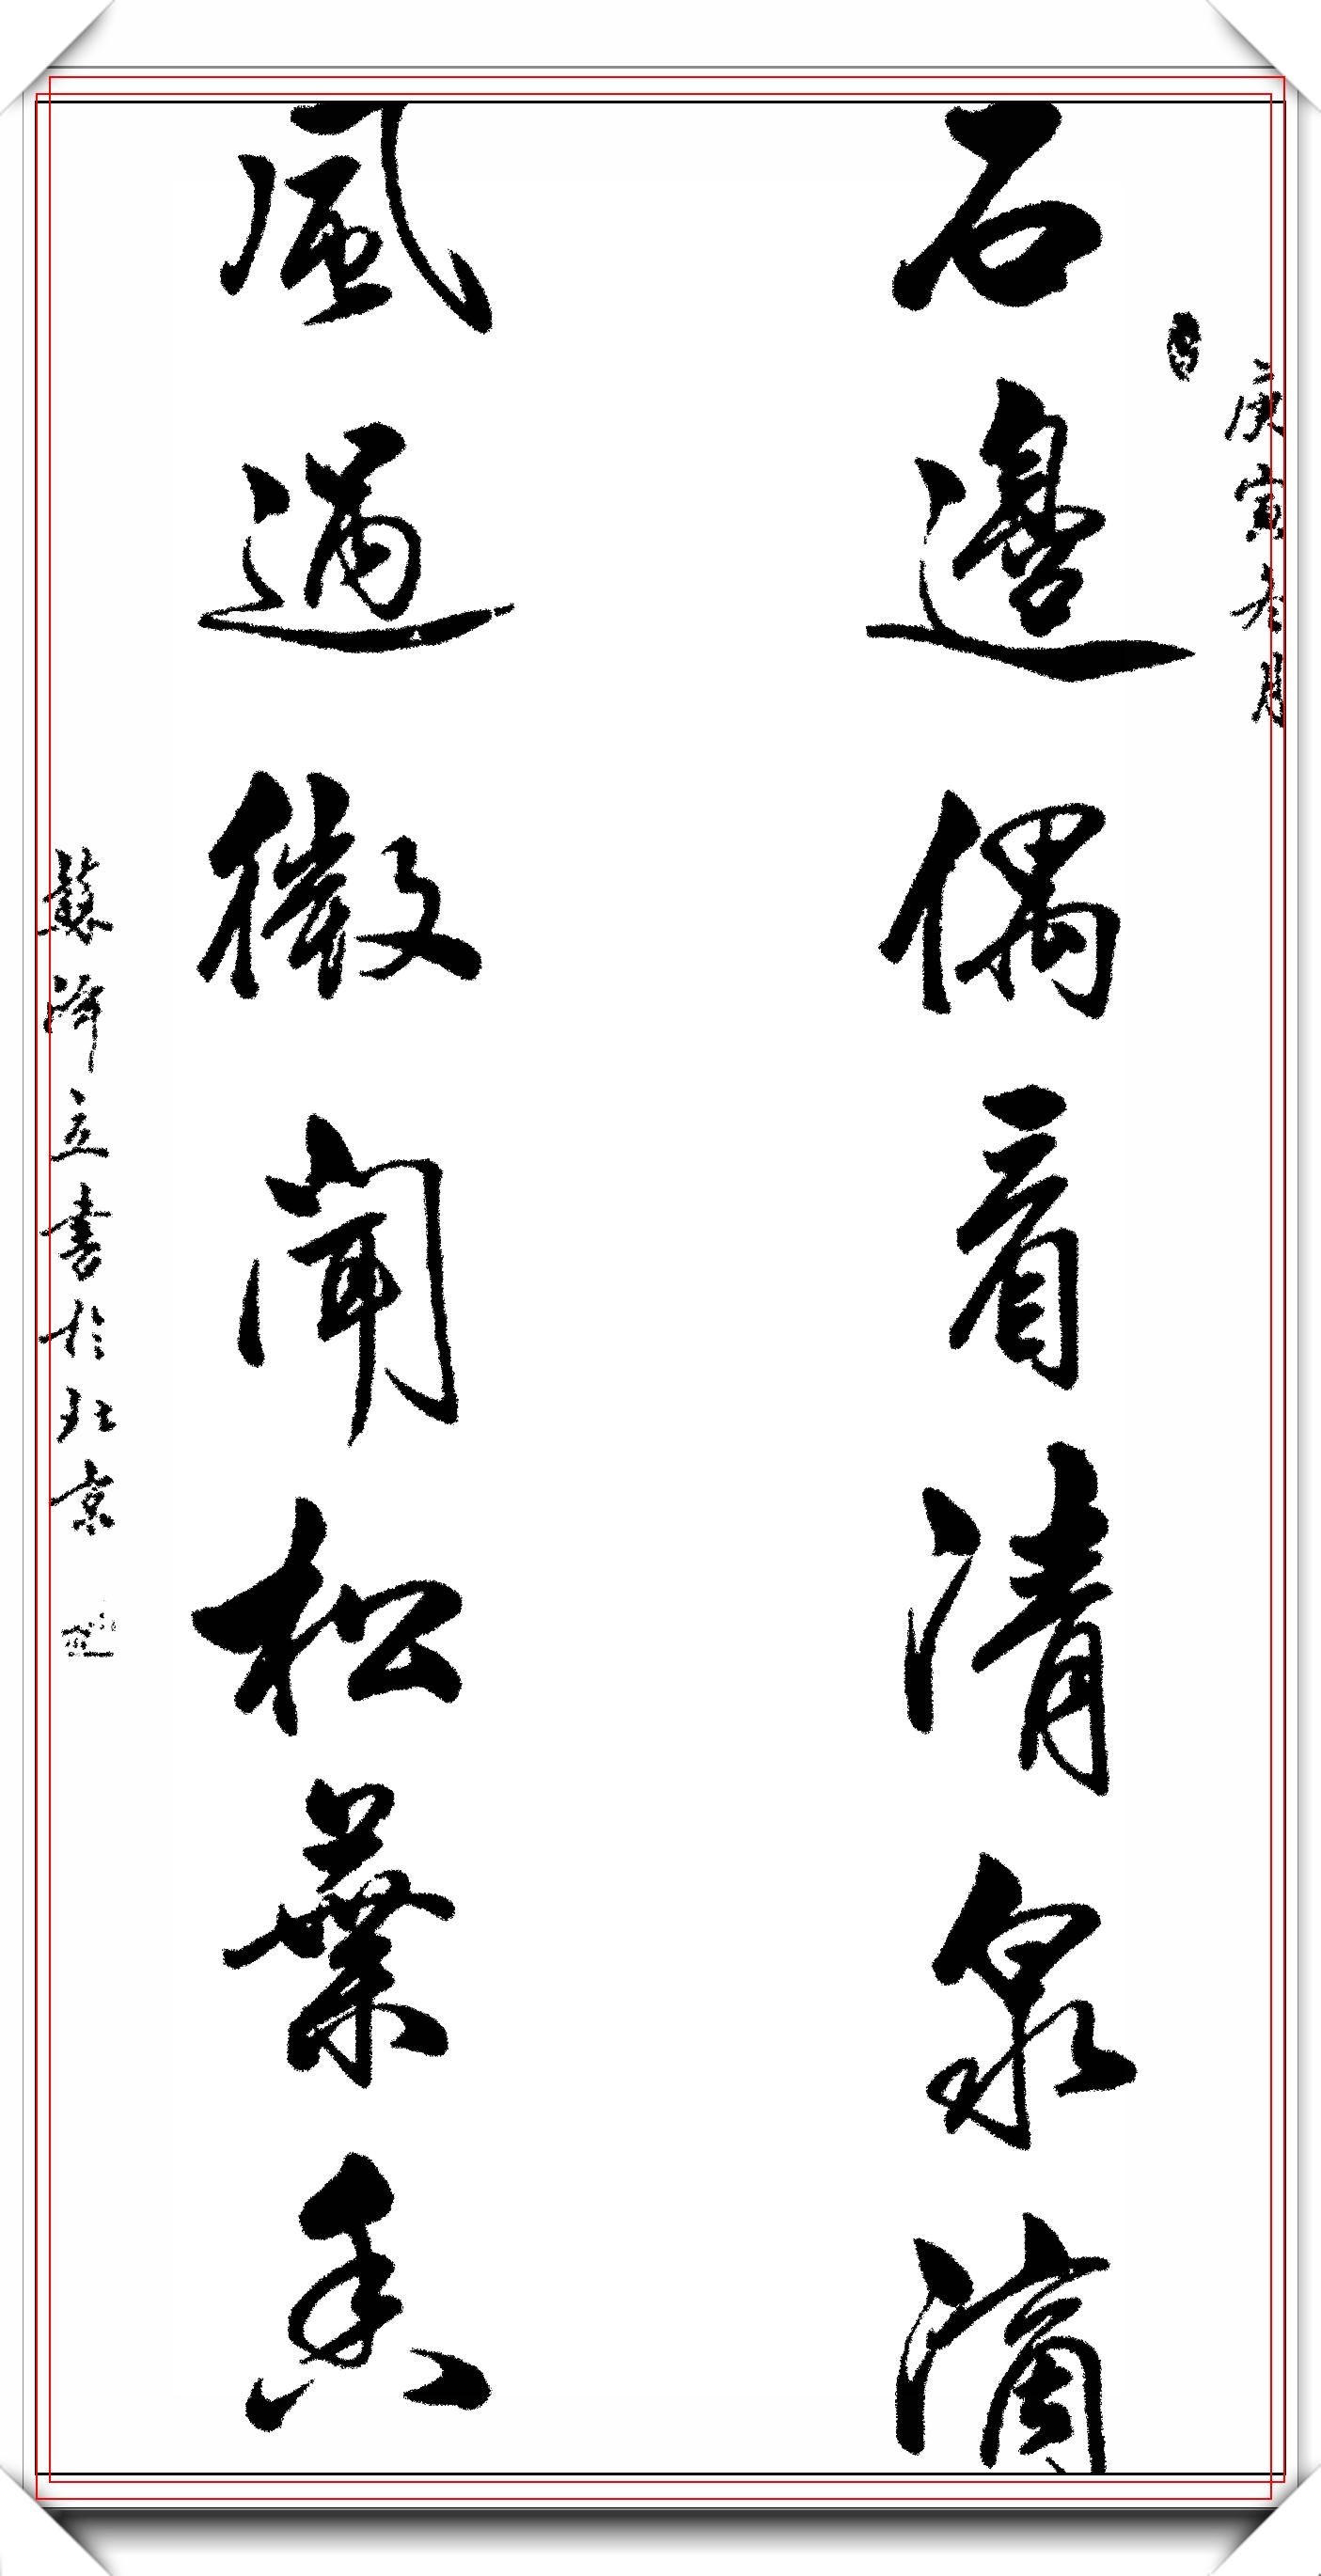 庚寅叁月
石邊偶看清泉滴
風過微聞松葉香
蘇澤立書於北京